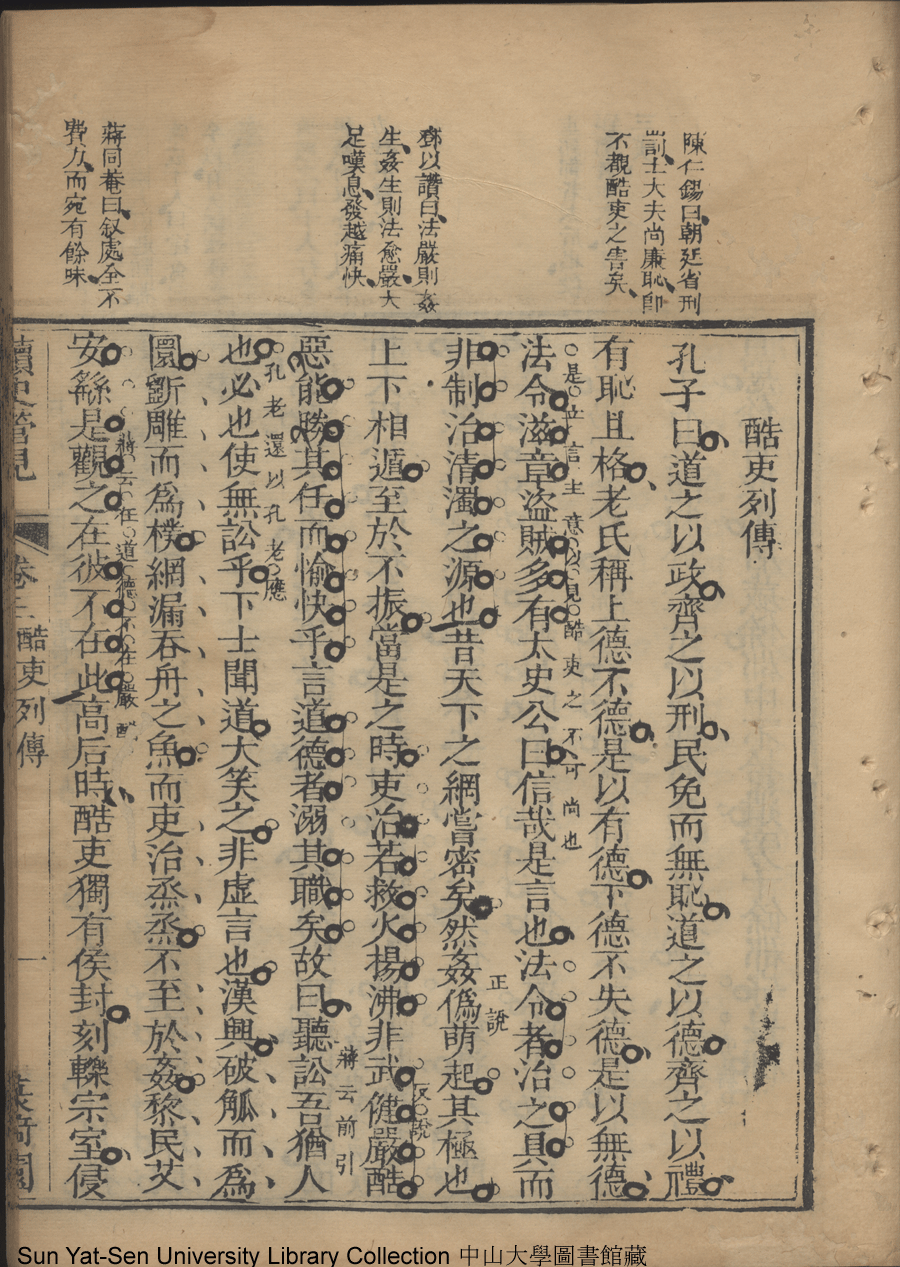 陳仁錫曰朝廷省刑
罰士大夫尚廉恥卽
不覩酷吏之害矣
鄧以讚曰法嚴則姦
生姦生則法愈嚴大
足嘆息發越痛快
蔣同菴曰叙處全不
費力而宛有餘味
酷吏列傳
孔子曰道之以政齊之以刑民免而無恥道之以德齊之以禮
有恥且格老氏稱上德不德是以有德下德不失德是以無德
是立言主意以見酷吏之不可尚也
法令滋章盜賊多有太史公曰信哉是言也法令者治之具而
非制治清濁之源也昔天下之網嘗密矣然姦僞萌起其極也
正說
上下相遁至於不振當是之時吏治若救火揚沸非武健嚴酷
反說
惡能勝其任而愉快乎言道德者溺其職矣故曰聽訟吾猶人
蔣云前引
孔老還以孔老應
也必也使無訟乎下士聞道大笑之非虛言也漢興破觚而爲
圜斲雕而爲樸網漏吞舟之魚而吏治烝烝不至於姦黎民艾
蔣云在道德不在嚴酷
安繇是觀之在彼不在此高后時酷吏獨有侯封刻轢宗室侵
讀史管見
卷三
酷吏列傳
一
Sun Yat-Sen University Library Collection 中山大學圖書館藏